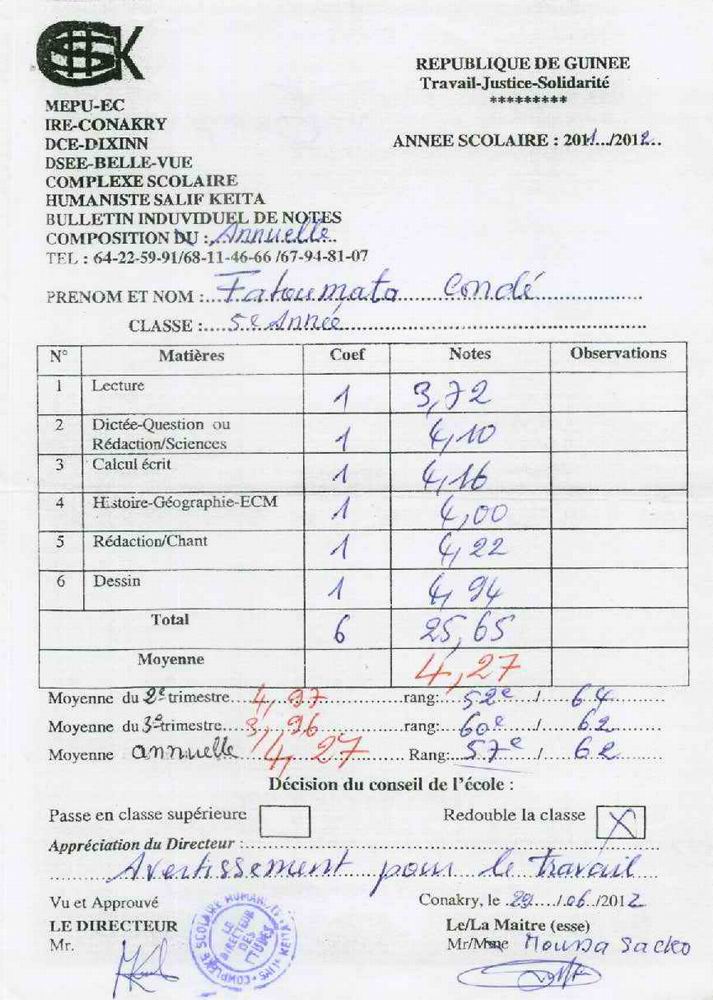 SK
REPUBLIQUE DE GUINEE
Travail-Justice-Solidarité
*********
MEPU-EC
IRE-CONAKRY
DCE-DIXINN
DSEE-BELLE-VUE
COMPLEXE SCOLAIRE
HUMANISTE SALIF KEITA
BULLETIN INDUVIDUEL DE NOTES
COMPOSITION DU : Annuelle
TEL : 64-22-59-91/68-11-46-66 /67-94-81-07
ANNEE SCOLAIRE : 2011.../2012...
PRENOM ET NOM :... Fatoumata Condé
CLASSE :.... 5e Année
N° Matières Coef Notes Observations
1 Lecture 1 3,72
2 Dictée-Question ou Rédaction/Sciences 1 4,10
3 Calcul écrit 1 4,16
4 Histoire-Géographie-ECM 1 4,00
5 Rédaction/Chant 1 4,22
6 Dessin 1 4,94
Total 6 25,65
Moyenne 4,27
Moyenne du 2e trimestre... 4,97 rang: 52e / 64
Moyenne du 3e trimestre... 3,96 rang: 60e / 62
Moyenne annuelle 4,27 Rang: 57e / 62
Décision du conseil de l'école :
Passe en classe supérieure Redouble la classe X
Appréciation du Directeur :
Avertissement pour le travail
Vu et Approuvé Conakry, le 29..../06/2012
LE DIRECTEUR Le/La Maitre (esse)
Mr. Mr/Mme Moussa Sacko
LE DIRECTEUR DES ETUDES